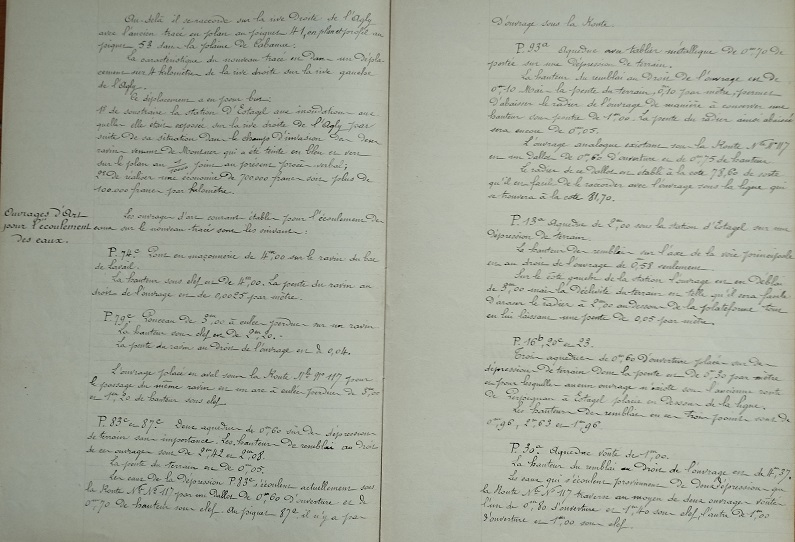 Au-delà il se raccorde sur la rive droite de l'Agly
avec l'ancien tracé en plan au piquet 41, en plan et profil au
piquet 53 dans la plaine de Cabanac.
La caractéristique du nouveau tracé est dans un dépla-
cement sur 4 kilomètres de la rive droite sur la rive gauche
de l'Agly.
Ce déplacement a eu pour but
1º de soustraire la station d'Estagel aux inondations aux
quelles elle était exposée sur la rive droite de l'Agly par
suite de sa situation dans le champ d'invasion des deux
ravins qui a été teinté en bleu et vert
sur le plan au joint au présent procès verbal;
2º de réaliser une économie de 700000 francs soit plus de
100.000 francs par kilomètre.
Ouvrages d'Art
pour l'écoulement
des eaux.
Les ouvrages d'art courants établis pour l'écoulement des
eaux sur le nouveau tracé sont les suivants:
P. 74c Pont en maçonnerie de 4m,00 sur le ravin du bac
de Laval.
La hauteur sous clef est de 4m,00. La pente du ravin au
droit de l'ouvrage est de 0,0025 par mètre.
P. 79c Ponceau de 3m,00 à culées perdues sur un ravin
La hauteur sous clef est de 2m,20.
La pente du ravin au droit de l'ouvrage est de 0,04.
L'ouvrage placé en aval sous la Route Nle Nº 117 pour
le passage du même ravin est un arc à culées perdues de 3,00
et 1m,20 de hauteur sous clef.
P. 83c et 87c Deux aqueducs de 0m,60 sur des dépressions
de terrain sans importance. Les hauteurs de remblai au droit
de ces ouvrages sont de 2m,42 et 2m,08.
La pente du terrain est de 0m,05.
Les eaux de la dépression P. 83c s'écoulent actuellement sous
la Route Nle Nº 117 par un dallot de 0m,60 d'ouverture et de
0m,70 de hauteur sous clef. Au piquet 87c il n'y a pas
d'ouvrage sous la Route.
P. 93a Aqueduc à tablier métallique de 0m,70 de
portée sur une dépression de terrain.
La hauteur du remblai au droit de l'ouvrage est de
0m,10 Mais la pente du terrain, 0,10 par mètre, permet
d'abaisser le radier de l'ouvrage de manière à conserver une
hauteur sous poutre de 1m,00. La pente du radier ainsi abaissé
sera encore de 0m,05.
L'ouvrage analogue existant sous la Route Nle Nº 117
est un dallot de 0m,60 d'ouverture et de 0m,75 de hauteur
Le radier de ce dallot est établi à la cote 78,60 de sorte
qu'il est facile de le raccorder avec l'ouvrage sous la ligne qui
se trouvera à la cote 81,70.
P. 13a Aqueduc de 2m,00 sous la station d'Estagel sur une
dépression de terrain.
La hauteur de remblai sur l'axe de la voie principale
est au droit de l'ouvrage de 0m,58 seulement.
Sur le côté gauche de la station l'ouvrage est en déblai
de 3m,00 mais la déclivité du terrain est telle qu'il sera facile
d'araser le radier à 2m,00 au dessous de la plateforme tout
en lui laissant une pente de 0,05 par mètre.
P. 16b, 20c et 23.
Trois aqueducs de 0m,60 d'ouverture placés sur des
dépressions de terrain dont la pente est de 0m,30 par mètre
et pour lesquelles aucun ouvrage n'existe sous l'ancienne route
de Perpignan à Estagel placée en dessous de la ligne.
Les hauteurs de remblai en ces trois points sont de
0m,96, 2m,63 et 1m,96.
P. 35a Aqueduc voûté de 1m,00.
La hauteur du remblai au Droit de l'ouvrage est de 4m,37.
Les eaux qui s'écoulent proviennent de deux dépressions que
la Route Nle Nº 117 traverse au moyen de deux ouvrages voûtés
l'un de 0m,80 d'ouverture et 1m,40 sous clef, l'autre de 1m,00
d'ouverture et 1m,00 sous clef.